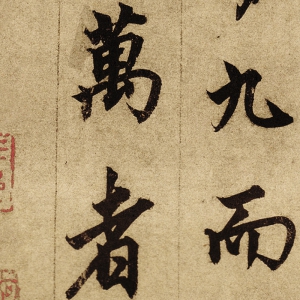 九而
萬者